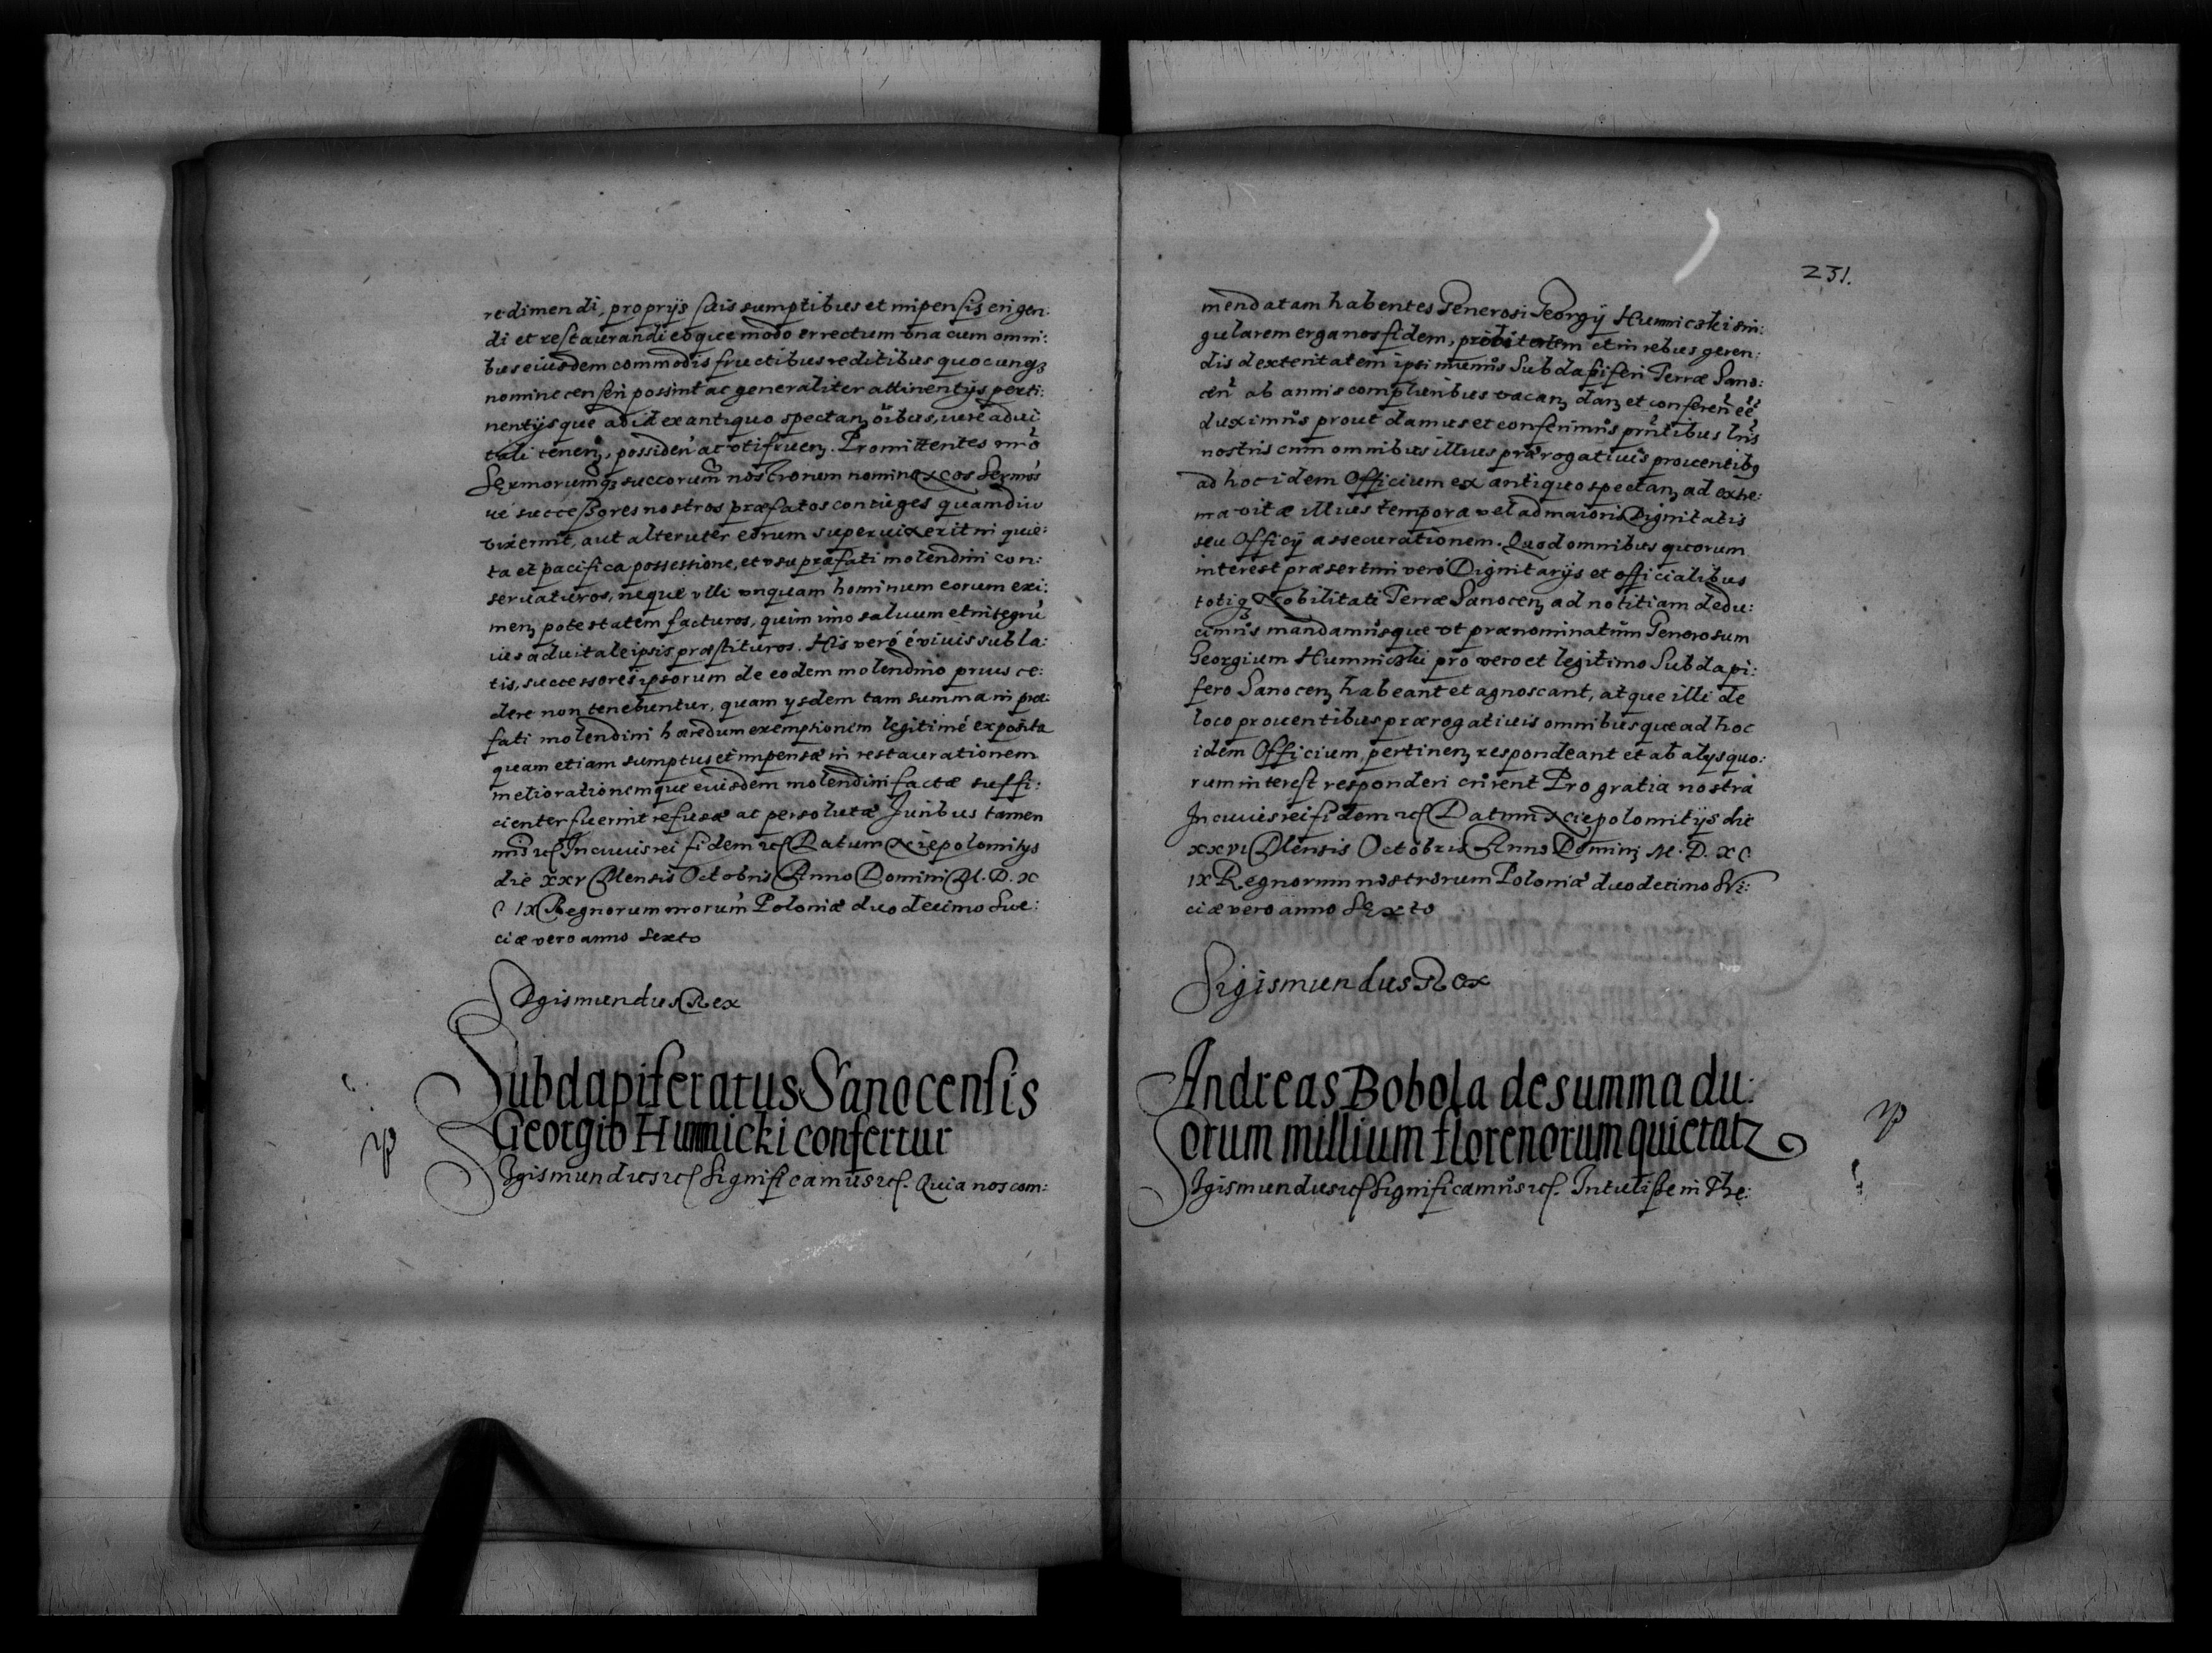 redimendi, proprijs suis sumptibus et impensis erigen:
di et restaurandi eoque modo errectum vna cum omni:
bus eiusdem commodis fructibus reditibus quocunq3
nomine censeri possint ac generaliter attinentijs perti:
nentijsque ad id ex antiquo spectan3 oibus, iure advi
tali tenen3, possiden ac vtifruen3. Promittentes nro
Sermorumq3 succorum nostrorum nomine nos Sermos
ue successores nostros præfatos coniuges quamdiu
vixerint, aut alteruter eorum supervixerit in quie:
ta et pacifica possessione, et vsu præfati molendini con:
servaturos, neque vlli vnquam hominum eorum exi:
men3 potestatem facturos, quim imo saluum et integrũ
ius aduitale ipsis præstituros. His veró é viuis subla:
tis, successores ipsorum de eodem molendino prius ce:
dere non tenebuntur, quam ysdem tam summa in præ:
fati molendini hæredum exemptionem legitimé exposita
quam etiam sumptus et impensæ in restaurationem
meliorationemque eiusdem molendini factæ suffi:
cienter fuerint refusæ at persolutæ Juribus tamen
nris etc In cuius rei fidem etc Datum Niepolomitys
die XXV Mensis Octobris Anno Domini M. D. X
C IX Regnorum nrorum Poloniæ duodecimo Sue:
ciæ vero anno sexto
Sigismundus Rex
Subdapiferatus Sanocensis
Georgio Humnicki confertur
Sigismundus etc Significamus etc. Quia nos com:
231.
mendatam habentes Generosi Georgÿ Humnicski sin:
gularem erga nos fidem, probitatem et in rebus geren:
dis dexteritatem ipsi munus Subdapiferi Terræ Sano:
cen ab annis compluribus vacan3 dan3 et conferen ee
duximus prout damus et conferimus pntibus lris
nostris cum omnibus illius prærogativis prouentibq
ad hoc idem Officium ex antiquo spectan3 ad extre:
ma vitæ illius tempora vel ad maioris Dignitatis
seu Officÿ assecurationem. Quod omnibus quorum
interest præsertim veró Dignitarijs et officialibus
totiq3 Nobilitati Terræ Sanocen3 ad notitiam dedu:
cimus mandamusque vt prænominatum Generosum
Georgium Humnicski pro vero et legitimo Subdapi:
fero Sanocen3 habeant et agnoscant, atque illi de
loco prouentibus prærogativis omnibusque ad hoc
idem Officium pertinen3 respondeant et ab alys quo:
rum interest responderi curent Pro gratia nostra
In cuius rei fidem etc Datum Niepolomitijs die
XXVI Mensis Octobris Anno Domini M. D. XC
IX Regnorum nostrorum Poloniæ duodecimo Sue:
ciæ vero anno Sexto
Sigismundus Rex
Andreas Bobola de summa du:
orum millium florenorum quietatz
Sigismundus etc Significamus etc. Intulisse in The: